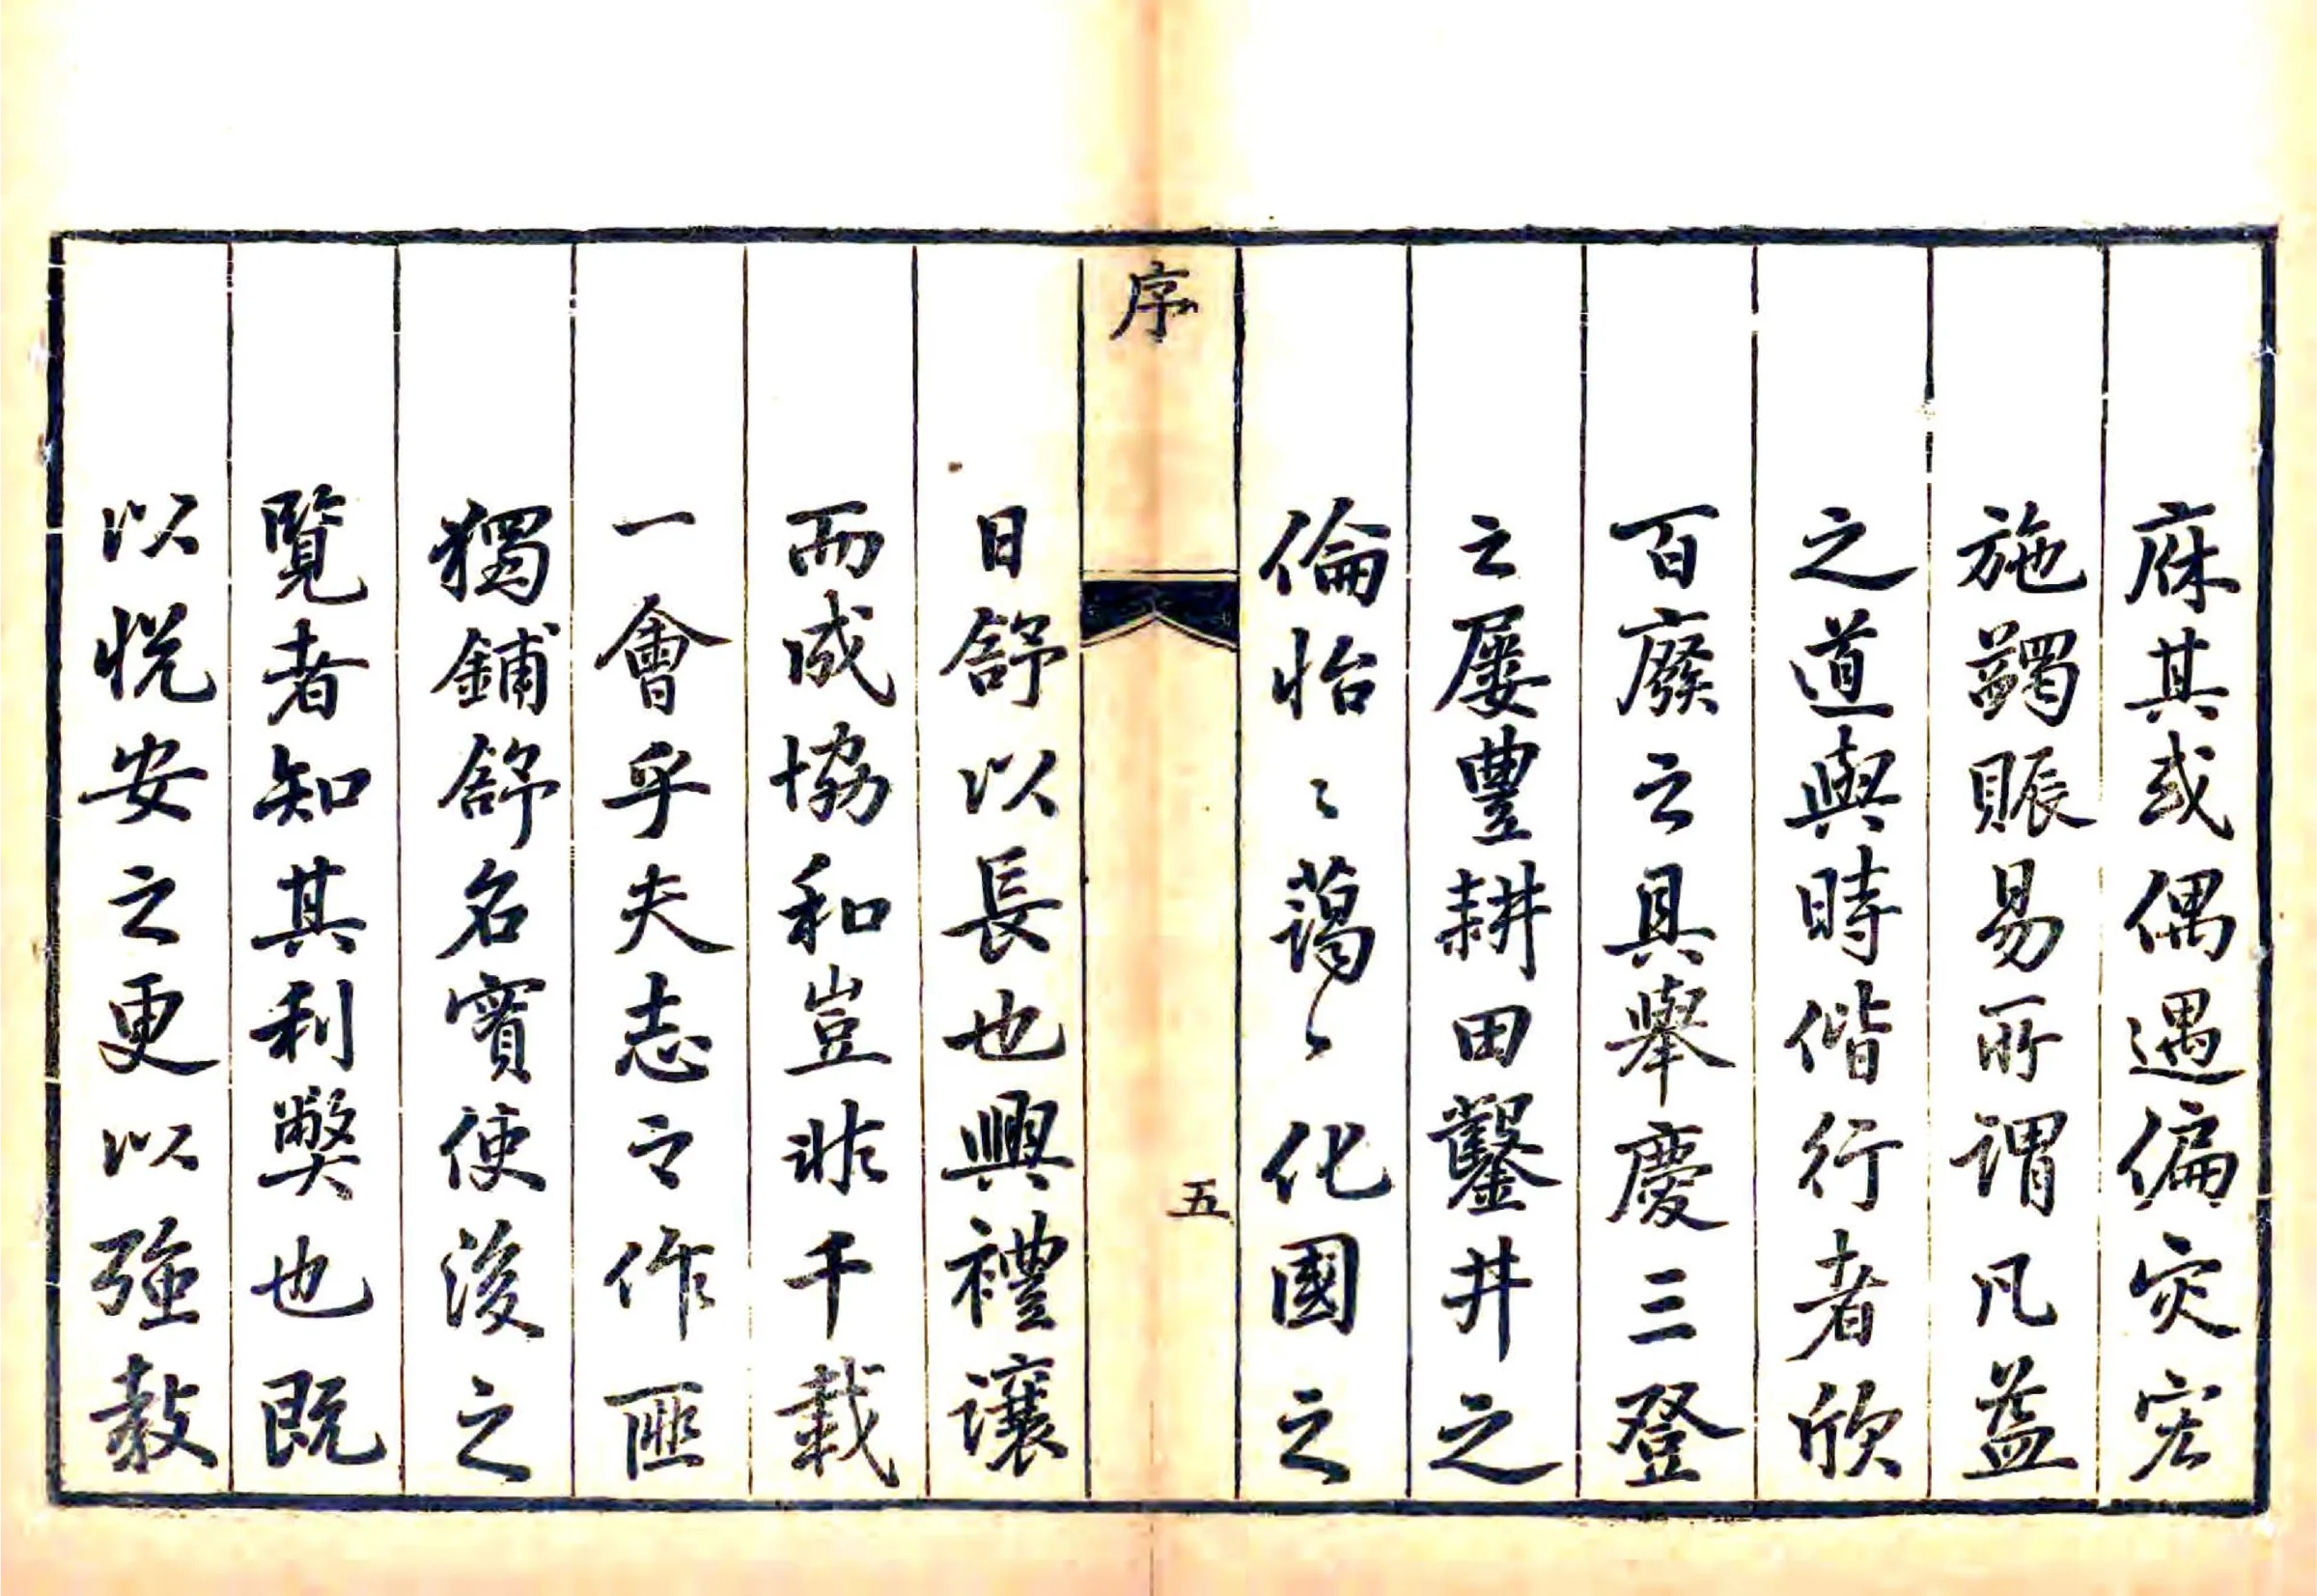 庥其或偶遇偏灾宏
施蠲賑易所謂凡益
之道與時偕行者欣
百廢之具舉慶三登
之屢豐耕田鑿井之
倫怡〻蕩〻化國之
序
五
日舒以長也興禮讓
而成協和豈非千載
一會乎夫志之作匪
獨鋪舒名實使後之
覽者知其利弊也既
以悦安之更以強教